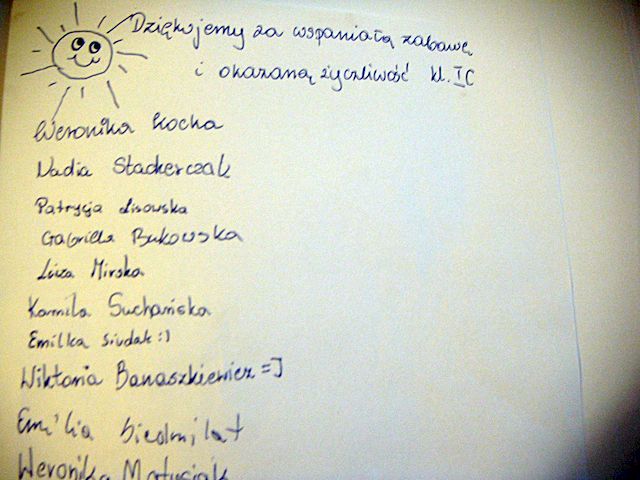 Dziękujemy za wspaniałą zabawę
i okazaną życzliwość kl. IC
Weronika Kocha
Nadia Stacherczak
Patrycja Lisowska
Gabriela Bukowska
Liza Mirska
Kamila Suchańska
Emilka Siudak :)
Wiktoria Banaszkiewicz =]
Emilia Siedmilat
Weronika Matusiak